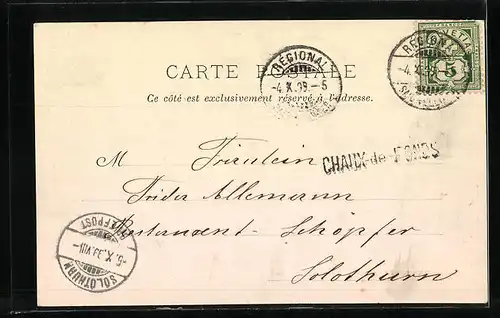 HELVETIA
5
REGIONAL
-4.X.99.-5
REGIONAL
-4.X.99
CARTE POSTALE
Ce côté est exclusivement réservé à l'adresse.
CHAUX-de-FONDS
M Fräulein
Frida Allemann
Restaurant Schöpfer
Solothurn
-5.X.99.VIII-
SOLOTHURN